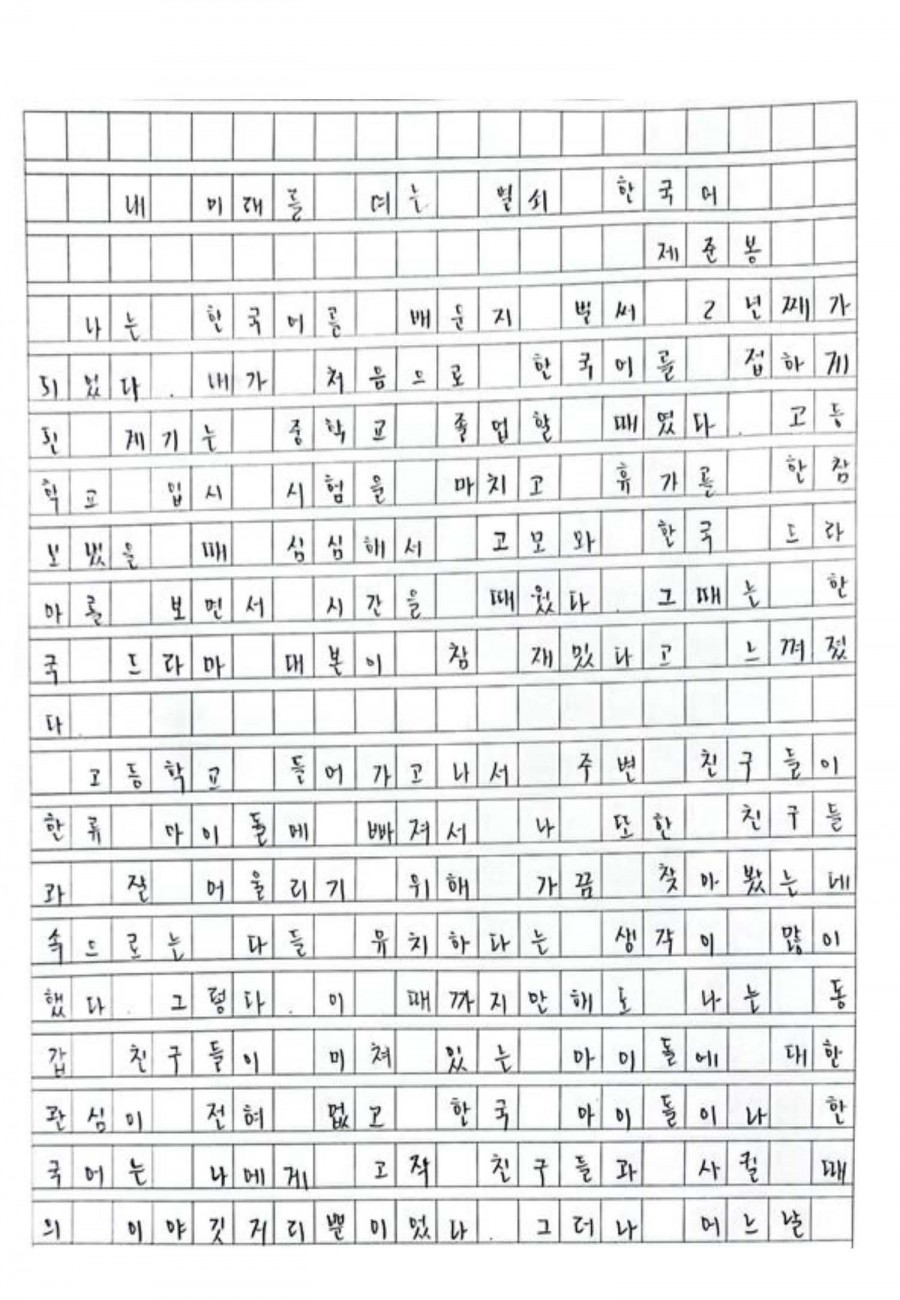 내 미래를 여는 열쇠 한국어
제준봉
나는 한국어를 배운지 벌써 2년째가
되었다. 내가 처음으로 한국어를 접하게
된 계기는 중학교 졸업할 때였다. 고등
학교 입시 시험을 마치고 휴가를 한참
보냈을 때 심심해서 고모와 한국 드라
마를 보면서 시간을 때웠다. 그때는 한
국 드라마 대본이 참 재밌다고 느껴졌
다.
고등학교 들어가고나서 주변 친구들이
한류 아이돌에 빠져서 나 또한 친구들
과 잘 어울리기 위해 가끔 찾아봤는데
속으로는 다들 유치하다는 생각이 많이
했다. 그렇다. 이 때까지만해도 나는 동
갑 친구들이 미쳐 있는 아이돌에 대한
관심이 전혀 없고 한국 아이돌이나 한
국어는 나에게 고작 친구들과 사귈 때
의 이야깃거리뿐이었다. 그러나 어느날